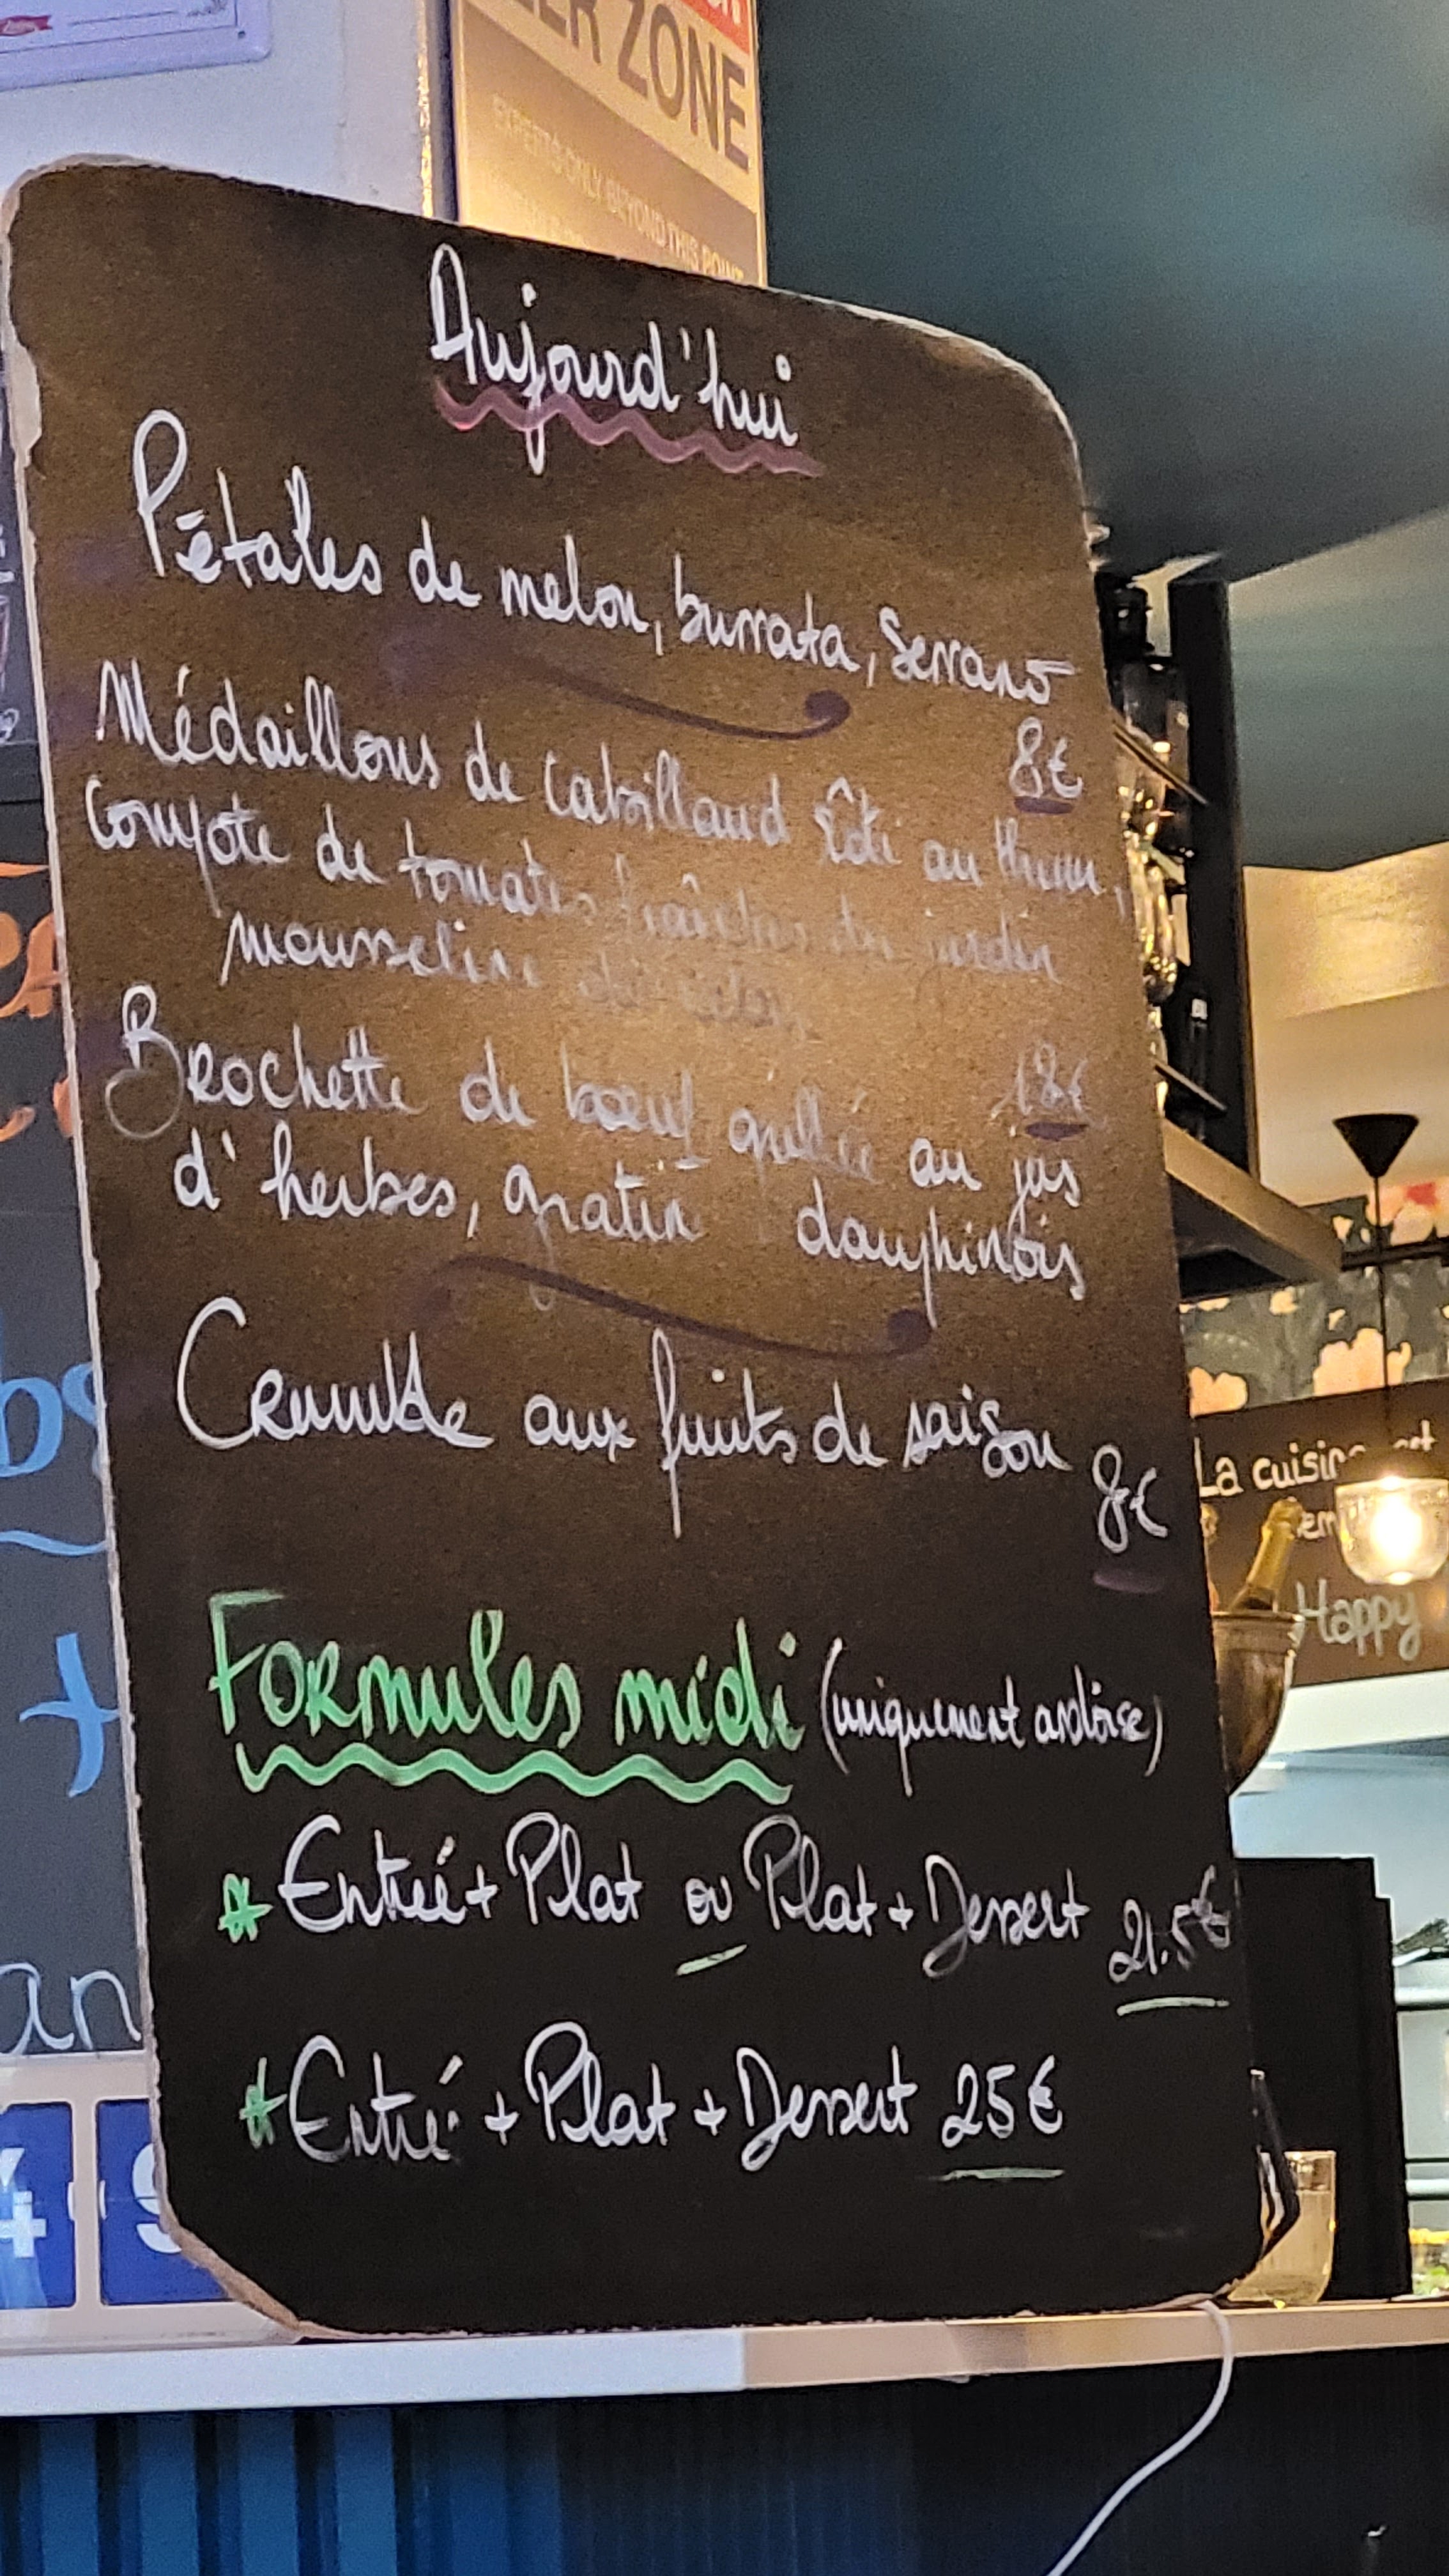 ER ZONE
EXPERTS ONLY BEYOND THIS POINT
Aujourd'hui
Pétales de melon, burrata, Serrano
8€
Médaillons de cabillaud rôti au thym,
Compote de tomates fraîches du jardin
mousseline de
18€
Brochette de bœuf grillée au jus
d'herbes, gratin dauphinois
Crumble aux fruits de saison
8€
Formules midi (uniquement ardoise)
* Entrée + Plat ou Plat + Dessert 21.5€
* Entrée + Plat + Dessert 25€
La cuisine est
Happy
bs
+
an
4 9